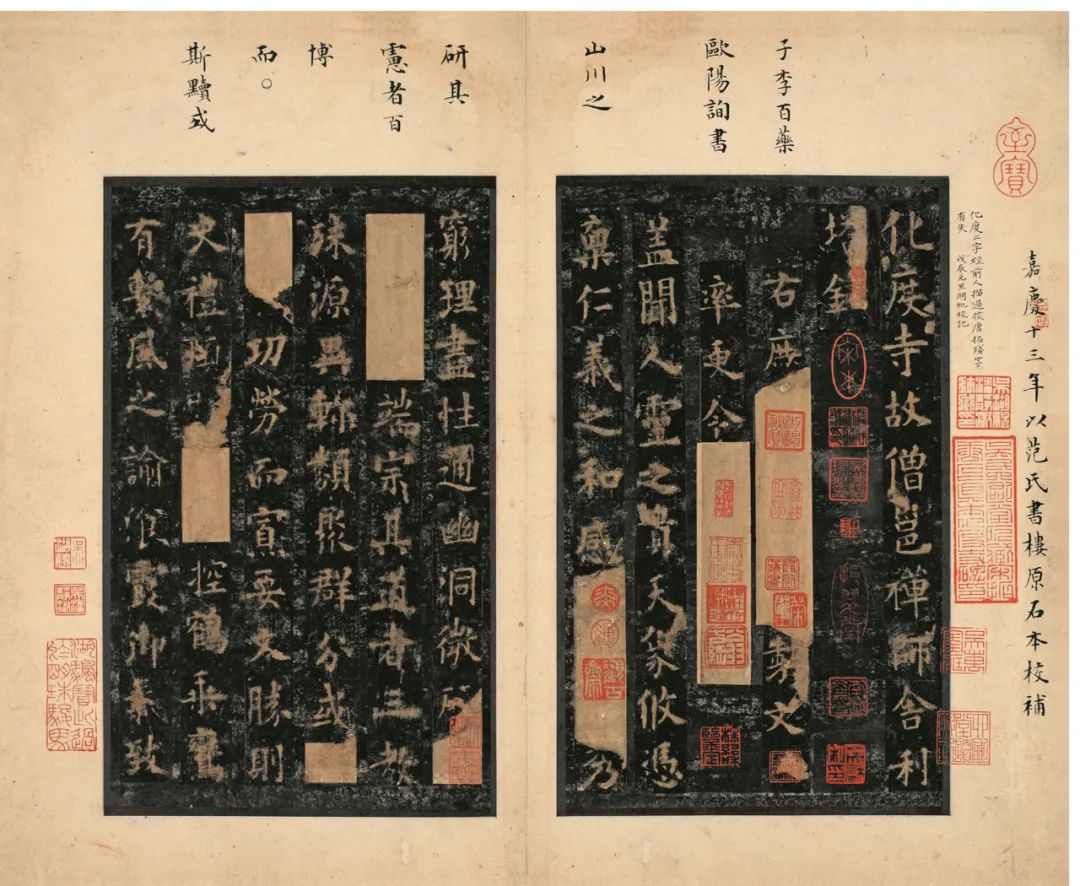 嘉慶十三年以范氏書樓原石本校補
化度二字經前人描過按唐拓殘字
有失 戊辰元旦湖帆校記
子李百藥
歐陽詢書
山川之
研其
憲者百
博
而。
斯黷或
化度寺故僧邕禪師舍利
塔銘
宋本
右庶 製文
率更令
蓋聞人靈之貴天象攸憑
稟仁義之和感 乃
窮理盡性通幽洞微
端宗其道者三教
殊源異軫類聚群分或
功勞而寡要文勝則
史禮煩 控鶴乘鸞
有繫風之諭飡霞御氣致